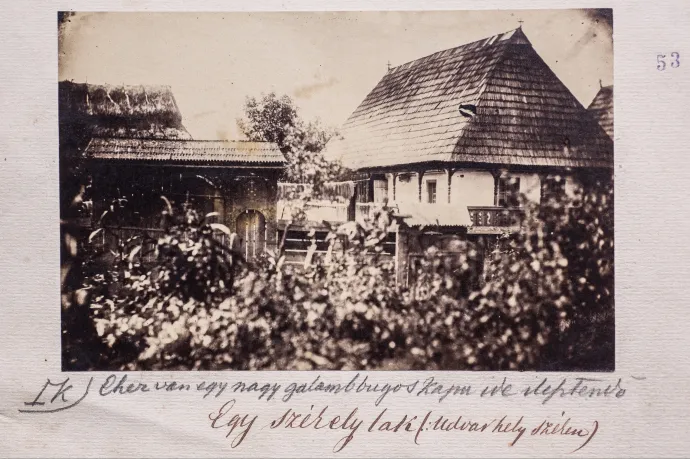 53
IK) Ehez van egy nagy galambbugos kapu ide
Egy székely lak (: Udvarhely széken)